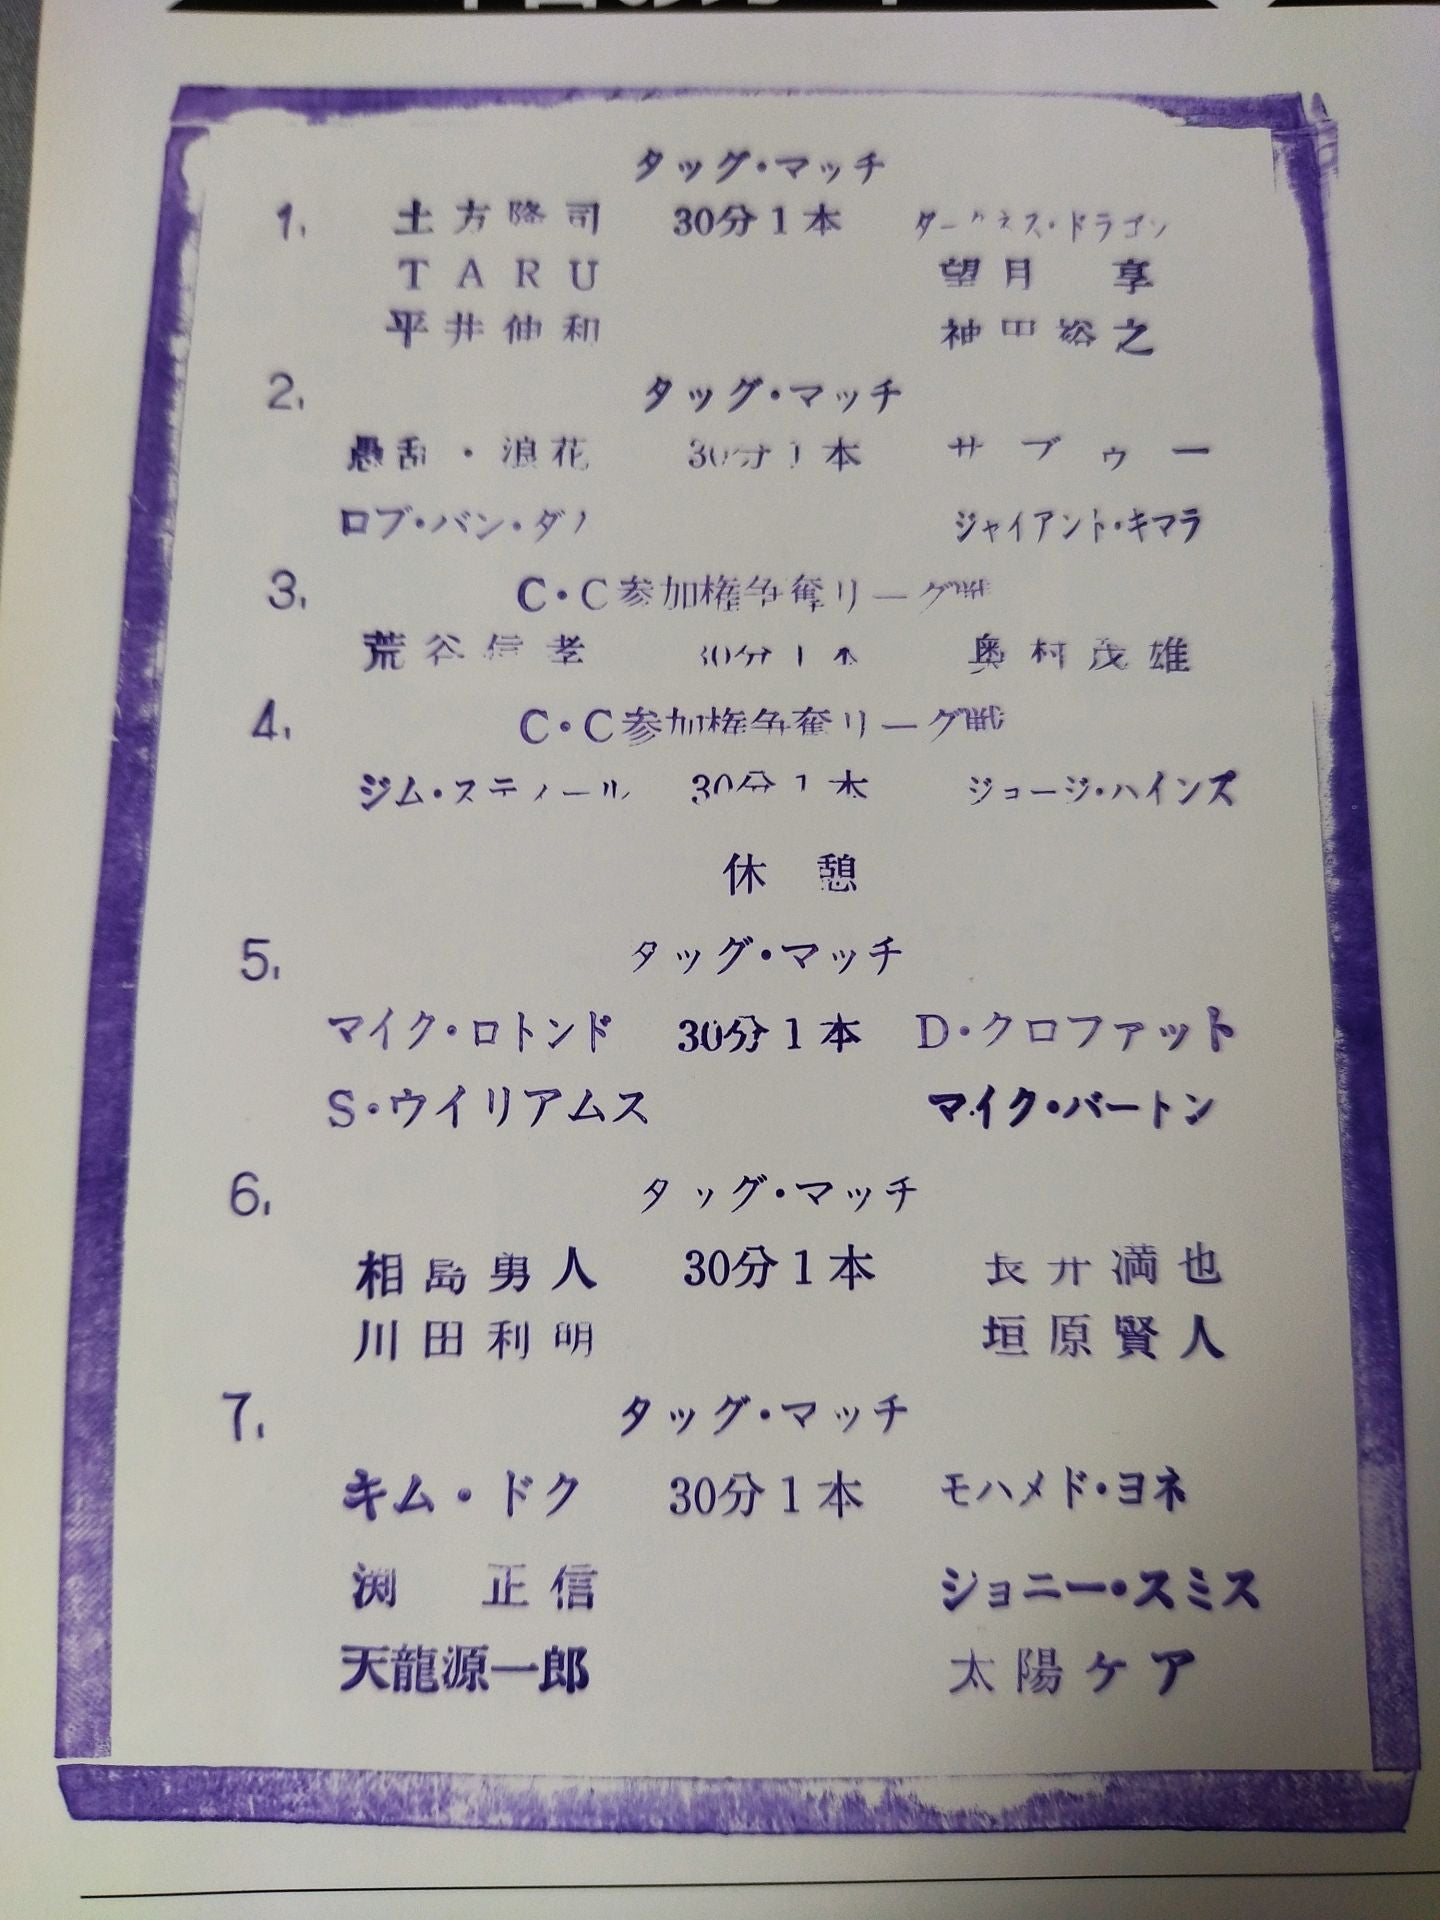 タッグ・マッチ
1. 土方隆司 30分1本 ダークネス・ドラゴン
TARU 望月 享
平井伸和 神田裕之
2. タッグ・マッチ
愚乱・浪花 30分1本 サブゥー
ロブ・バン・ダム ジャイアント・キマラ
3. C・C参加権争奪リーグ戦
荒谷信孝 30分1本 奥村茂雄
4. C・C参加権争奪リーグ戦
ジム・スティール 30分1本 ジョージ・ハインズ
休憩
5. タッグ・マッチ
マイク・ロトンド 30分1本 D・クロファット
S・ウイリアムス マイク・バートン
6. タッグ・マッチ
相島勇人 30分1本 長井満也
川田利明 垣原賢人
7. タッグ・マッチ
キム・ドク 30分1本 モハメド・ヨネ
渕 正信 ジョニー・スミス
天龍源一郎 太陽ケア